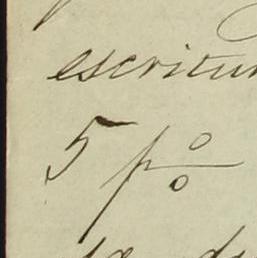 escritu
5 p%